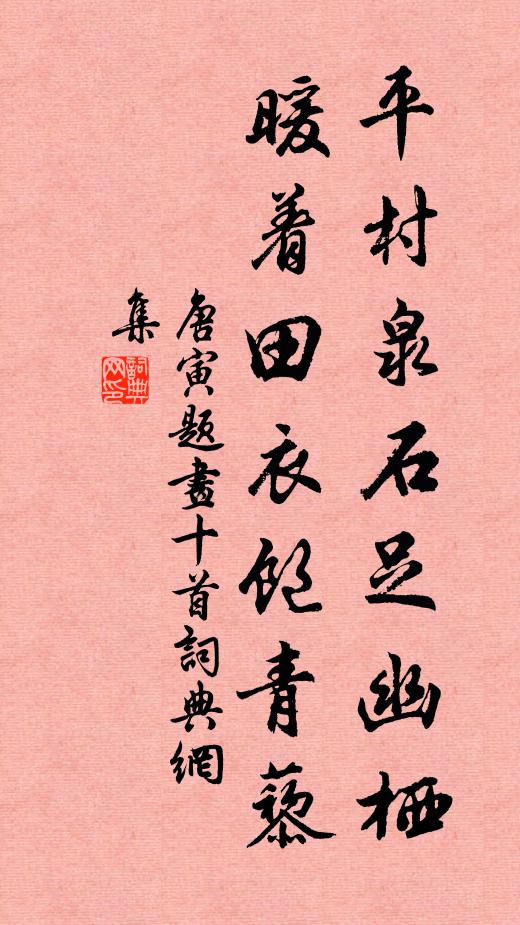 平村泉石足幽栖
暖着田衣飽青藜
唐寅題畫十首詞典網
集
詞典
网印